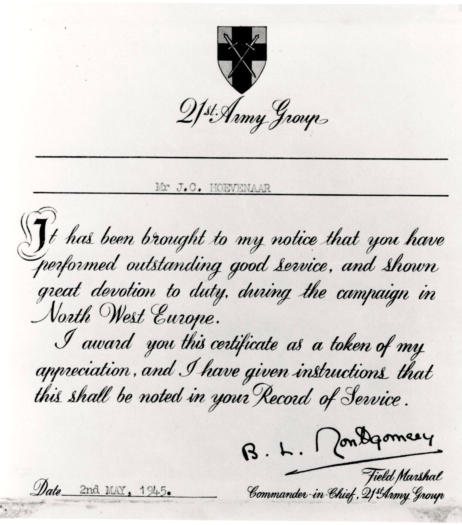 21st Army Group
Mr J.C. HOEVENAAR
It has been brought to my notice that you have
performed outstanding good service, and shown
great devotion to duty, during the campaign in
North West Europe.
I award you this certificate as a token of my
appreciation, and I have given instructions that
this shall be noted in your Record of Service.
B. L. Montgomery
Field Marshal
Date 2nd MAY, 1945. Commander-in-Chief, 21st Army Group